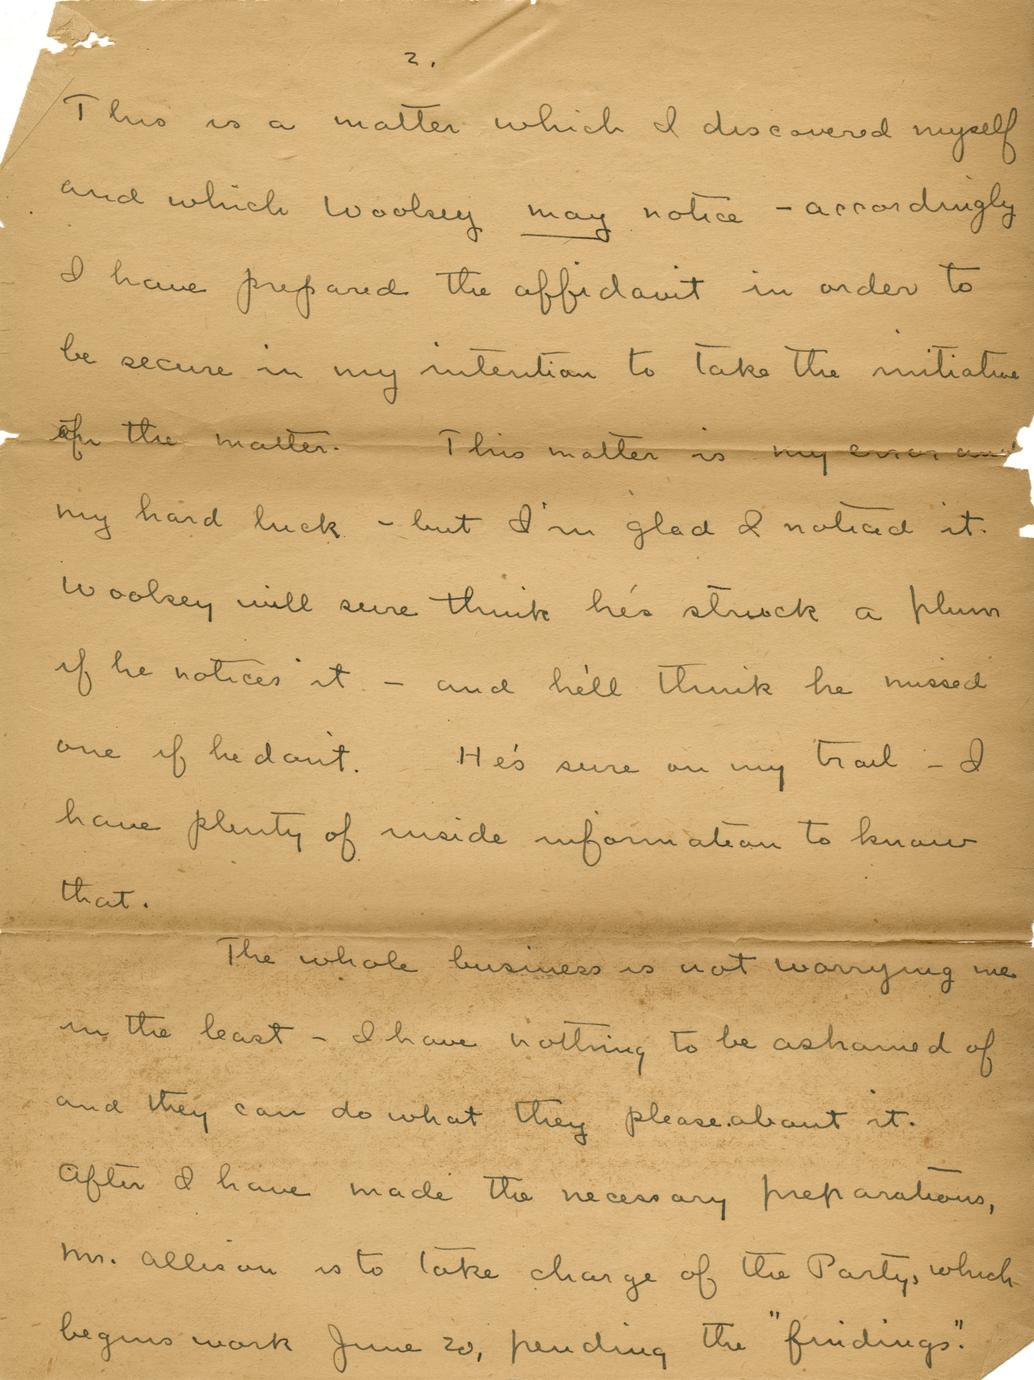 2.
This is a matter which I discovered myself
and which Woolsey may notice - accordingly
I have prepared the affidavit in order to
be secure in my intention to take the initiative
the matter. This matter is my error and
my hard luck - but I'm glad I noticed it.
Woolsey will sure think he's struck a plum
if he notices it - and he'll think he missed
one if he don't. He's sure on my trail - I
have plenty of inside information to know
that.
The whole business is not worrying me
in the least - I have nothing to be ashamed of
and they can do what they please about it.
After I have made the necessary preparations,
Mr. Allison is to take charge of the Party, which
begins work June 20, pending the "findings".